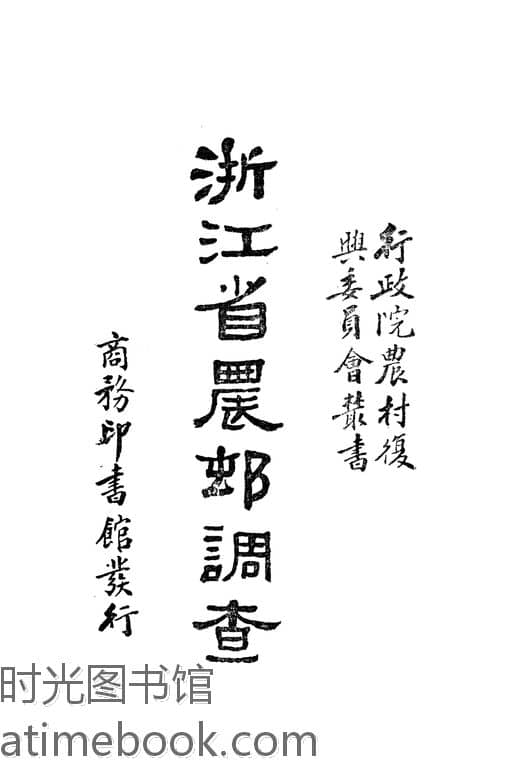 行政院農村復
興委員會叢書
浙江省農邨調查
商務印書館發行
时光图书馆
atimebook.com